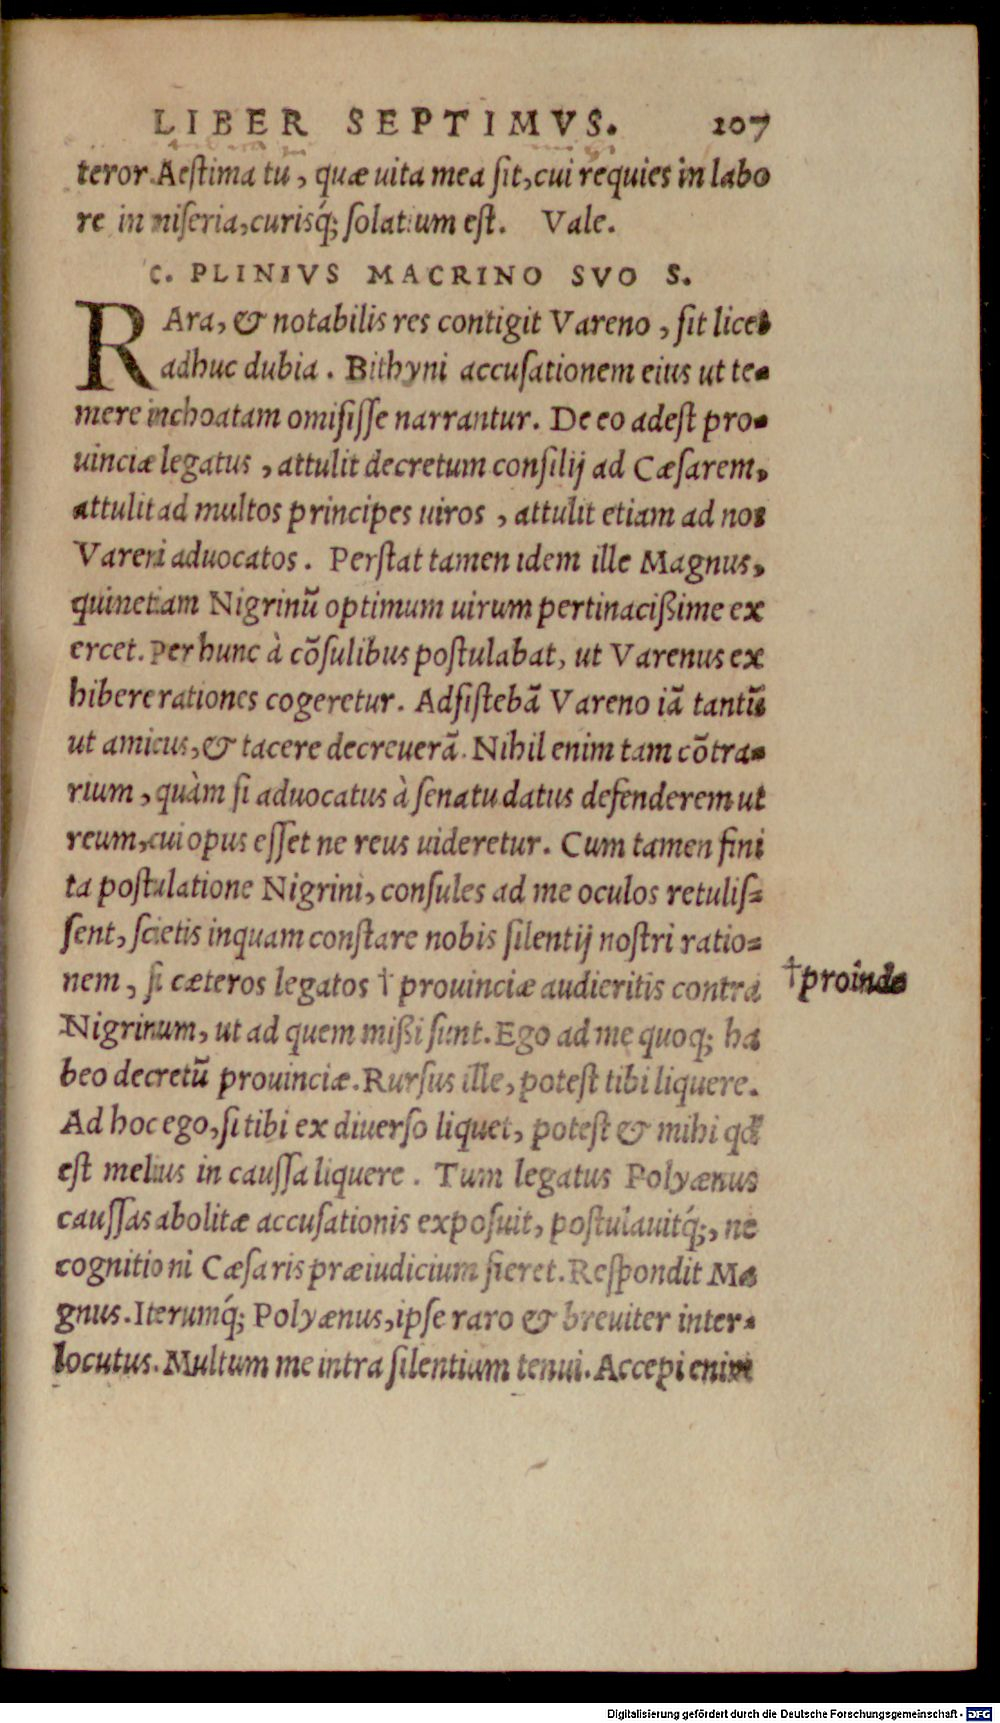 LIBER SEPTIMVS. 107
teror. Aestima tu, quæ uita mea sit, cui requies in labo
re in miseria, curisq́; solatium est. Vale.
C. PLINIVS MACRINO SVO S.
RAra, & notabilis res contigit Vareno, sit licet
adhuc dubia. Bithyni accusationem eius ut te-
mere inchoatam omisisse narrantur. De eo adest pro-
uinciæ legatus, attulit decretum consilij ad Cæsarem,
attulit ad multos principes uiros, attulit etiam ad nos
Vareni aduocatos. Perstat tamen idem ille Magnus,
quinetiam Nigrinū optimum uirum pertinacißime ex
ercet. Per hunc à cōsulibus postulabat, ut Varenus ex
hibere rationes cogeretur. Adsistebā Vareno iā tantū
ut amicus, & tacere decreuerā. Nihil enim tam cōtra-
rium, quàm si aduocatus à senatu datus defenderem ut
reum, cui opus esset ne reus uideretur. Cum tamen fini
ta postulatione Nigrini, consules ad me oculos retulis=
sent, scietis inquam constare nobis silentij nostri ratio=
nem, si cæteros legatos † prouinciæ audieritis contra
†proinde
Nigrinum, ut ad quem mißi sunt. Ego ad me quoq; ha
beo decretū prouinciæ. Rursus ille, potest tibi liquere.
Ad hoc ego, si tibi ex diuerso liquet, potest & mihi qd
est melius in caussa liquere. Tum legatus Polyænus
caussas abolitæ accusationis exposuit, postulauitq́;, ne
cognitioni Cæsaris præiudicium fieret. Respondit Ma
gnus. Iterumq́; Polyænus, ipse raro & breuiter inter-
locutus. Multum me intra silentium tenui. Accepi enim
Digitalisierung gefördert durch die Deutsche Forschungsgemeinschaft - DFG